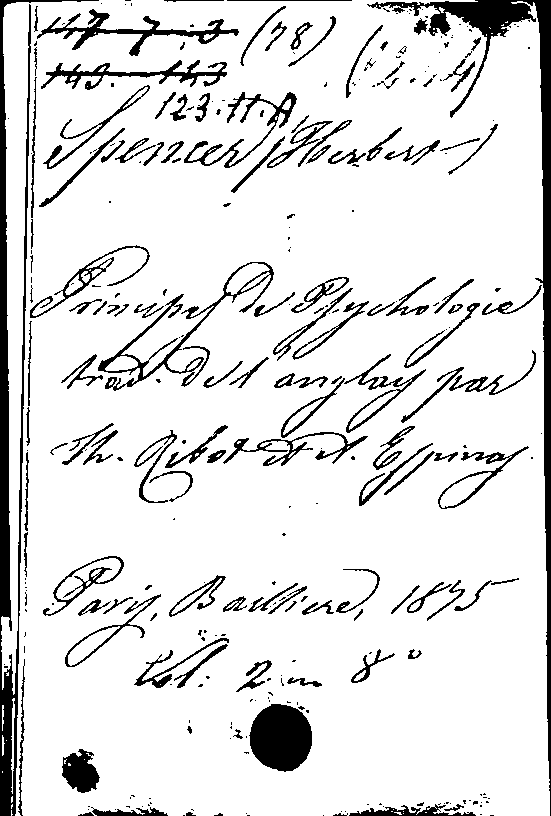 117 7 3 (78)
143. 143
123.H.A
Spencer (Herbert)
Principes de Psychologie
trad. de l'anglais par
Th. Ribot et A. Espinas
Paris, Baillière, 1875
Vol: 2 in 8°